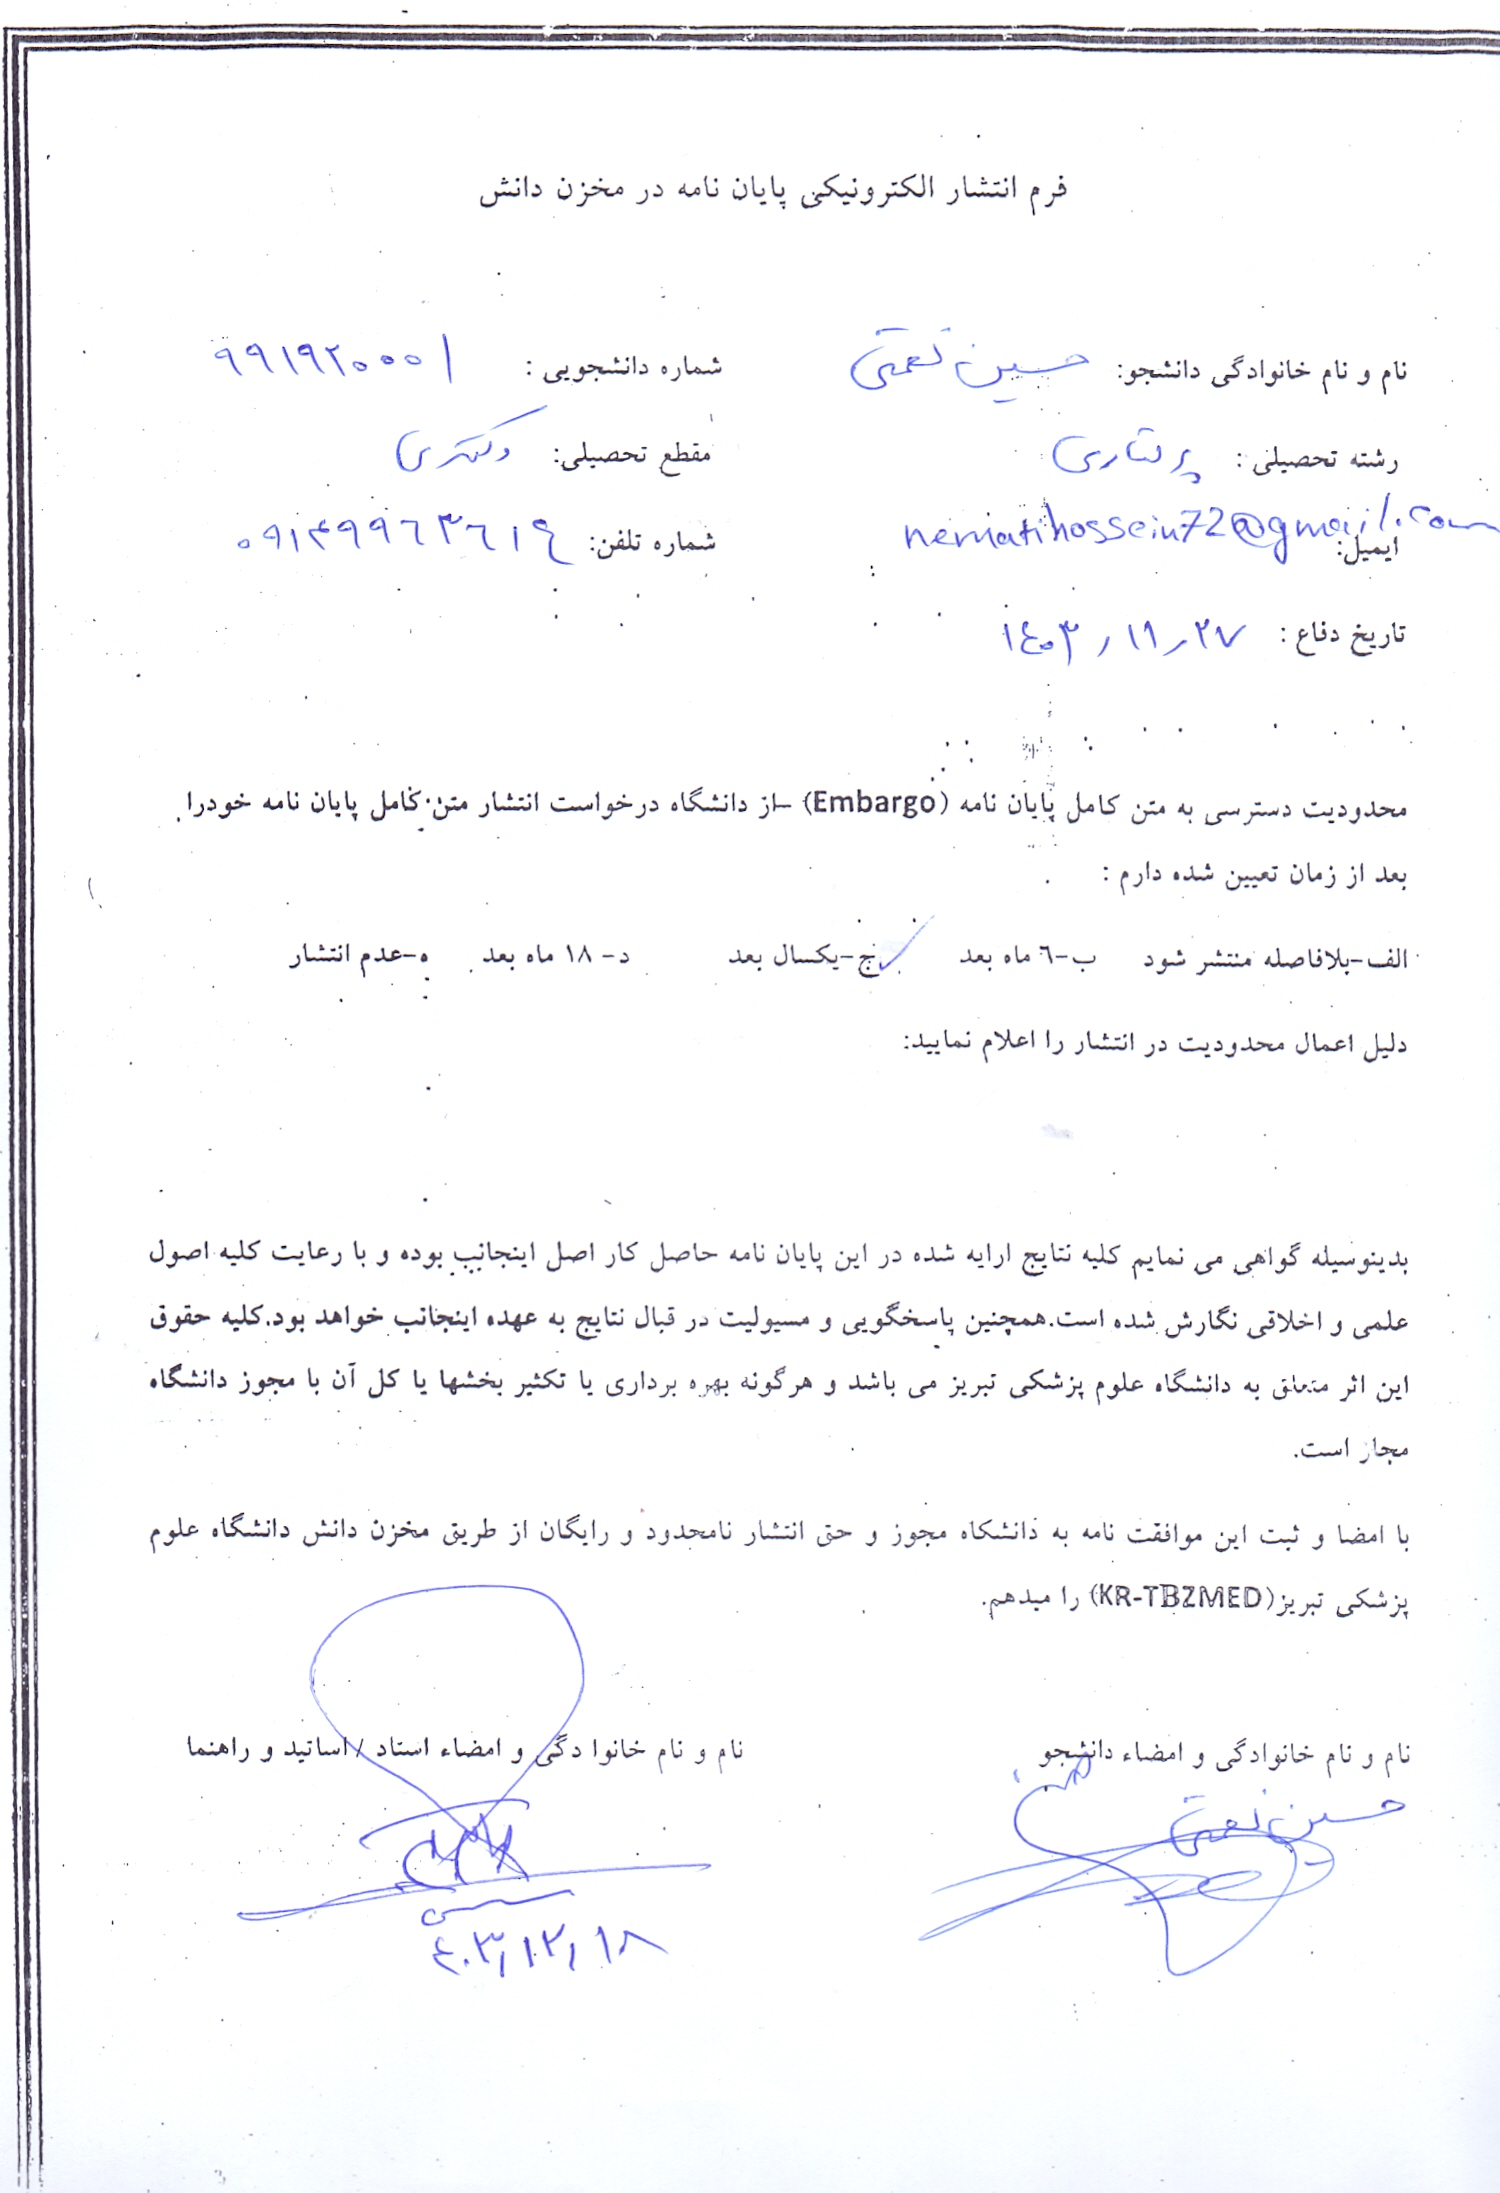 فرم انتشار الکترونیکی پایان نامه در مخزن دانش
نام و نام خانوادگی دانشجو: حسین نعمتی شماره دانشجویی : ۹۹۱۹۲۰۰۰۱
رشته تحصیلی : پرستاری مقطع تحصیلی: دکتری
ایمیل: nematihossein72@gmail.com شماره تلفن: ۰۹۱۴۹۹۶۳۶۱۹
تاریخ دفاع : ۱۴۰۳/۱۱/۲۷
محدودیت دسترسی به متن کامل پایان نامه (Embargo) -از دانشگاه درخواست انتشار متن کامل پایان نامه خودرا
بعد از زمان تعیین شده دارم :
الف-بلافاصله منتشر شود ب-٦ ماه بعد ج-یکسال بعد ✓ د- ۱۸ ماه بعد ه-عدم انتشار
دلیل اعمال محدودیت در انتشار را اعلام نمایید:
بدینوسیله گواهی می نمایم کلیه نتایج ارایه شده در این پایان نامه حاصل کار اصل اینجانب بوده و با رعایت کلیه اصول
علمی و اخلاقی نگارش شده است.همچنین پاسخگویی و مسیولیت در قبال نتایج به عهده اینجانب خواهد بود.کلیه حقوق
این اثر متعلق به دانشگاه علوم پزشکی تبریز می باشد و هرگونه بهره برداری یا تکثیر بخشها یا کل آن با مجوز دانشگاه
مجاز است.
با امضا و ثبت این موافقت نامه به دانشگاه مجوز و حق انتشار نامحدود و رایگان از طریق مخزن دانش دانشگاه علوم
پزشکی تبریز(KR-TBZMED) را میدهم.
نام و نام خانوادگی و امضاء دانشجو نام و نام خانوا دگی و امضاء استاد / اساتید و راهنما
حسین نعمتی
۴۰۳/۱۲/۱۸